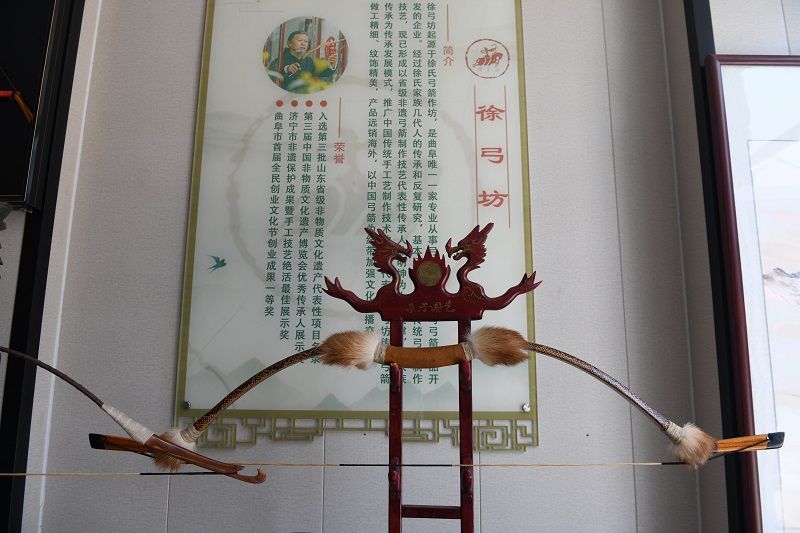 徐弓坊
简介
徐弓坊起源于徐氏弓箭作坊，是曲阜唯一一家专业从事 弓箭 品开
发的企业。经过徐氏家族几代人的传承和反复研究，基本 传统弓 制作
技艺，现已形成以省级非遗弓箭制作技艺代表性传承人
传承为传承发展模式，推广中国传统手工艺制作技术 代表 弓坊传 弓箭
做工精细、纹饰精美，产品远销海外，以中国弓箭为纽带加强文化 播交
荣誉
● 入选第三批山东省级非物质文化遗产代表性项目名录
● 第三届中国非物质文化遗产博览会优秀传承人展示奖
● 济宁市非遗保护成果暨手工技艺绝活最佳展示奖
● 曲阜市首届全民创业文化节创业成果一等奖